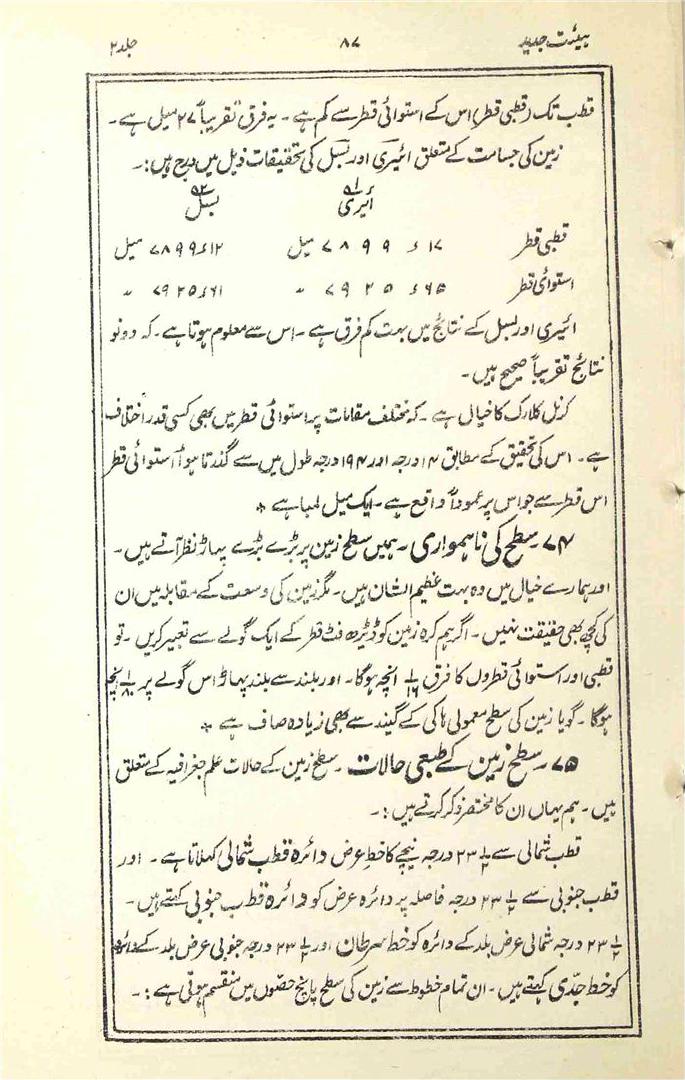 ہیئت جدید ۸۷ جلد ۲
قطب تک (قطبی قطر) اس کے استوائی قطر سے کم ہے ۔ یہ فرق تقریباً ۲۷ میل ہے ۔
زمین کی جسامت کے متعلق ائیری اور بسل کی تحقیقات ذیل میں درج ہیں :۔
۹۱ ۹۲
ائیری بسل
قطبی قطر ۷۸۹۹ء۱۷ میل ۷۸۹۹ء۱۲ میل
استوائی قطر ۷۹۲۵ء۶۵ ״ ۷۹۲۵ء۶۱ ״
ائیری اور بسل کے نتائج میں بہت کم فرق ہے ۔ اس سے معلوم ہوتا ہے ۔ کہ دونو
نتائج تقریباً صحیح ہیں ۔
کرنل کلارک کا خیال ہے ۔ کہ مختلف مقامات پر استوائی قطر میں بھی کسی قدر اختلاف
ہے ۔ اس کی تحقیق کے مطابق ۱۴ درجہ اور ۱۹۴ درجہ طول میں سے گذرتا ہوا استوائی قطر
اس قطر سے جو اس پر عموداً واقع ہے ۔ ایک میل لمبا ہے *
۷۴ ۔ سطح کی ناہمواری ۔ ہمیں سطح زمین پر بڑے بڑے پہاڑ نظر آتے ہیں ۔
اور ہمارے خیال میں وہ بہت عظیم الشان ہیں ۔ مگر زمین کی وسعت کے مقابلہ میں ان
کی کچھ بھی حقیقت نہیں ۔ اگر ہم کرہ زمین کو ڈیڑھ فٹ قطر کے ایک گولے سے تعبیر کریں ۔ تو
قطبی اور استوائی قطروں کا فرق ۱/۱۶ انچہ ہوگا ۔ اور بلند سے بلند پہاڑ اس گولے پر ۱/۸۰ انچہ
ہوگا ۔ گویا زمین کی سطح معمولی ہاکی کے گیند سے بھی زیادہ صاف ہے *
۷۵ ۔ سطح زمین کے طبعی حالات ۔ سطح زمین کے حالات علم جغرافیہ کے متعلق
ہیں ۔ ہم یہاں ان کا مختصر ذکر کرتے ہیں :۔
قطب شمالی سے ۲۳ ۱/۲ درجہ نیچے کا خط عرض دائرہ قطب شمالی کہلاتا ہے ۔ اور
قطب جنوبی سے ۲۳ ۱/۲ درجہ فاصلہ پر دائرہ عرض کو دائرہ قطب جنوبی کہتے ہیں ۔
۲۳ ۱/۲ درجہ شمالی عرض بلد کے دائرہ کو خط سرطان اور ۲۳ ۱/۲ درجہ جنوبی عرض بلد کے دائرہ
کو خط جدّی کہتے ہیں ۔ ان تمام خطوط سے زمین کی سطح پانچ حصّوں میں منقسم ہوتی ہے :۔